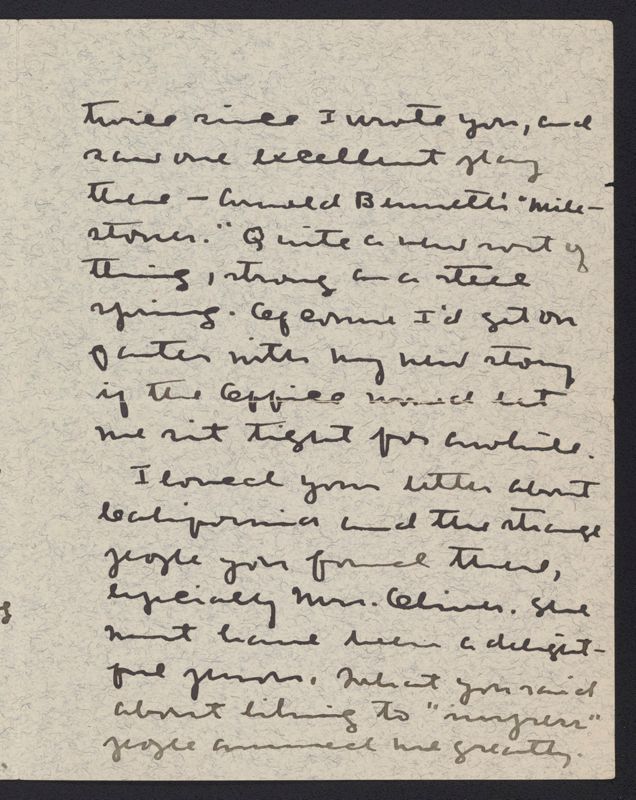 twice since I wrote you, and
saw one excellent play
there — Arnold Bennett's "Mile-
stones." Quite a new sort of
thing, strong as a steel
spring. Of course I'd get on
faster with my new story
if the Office would let
me sit tight for awhile.
I loved your letter about
California and the strange
people you found there,
especially Mrs. Oliver. She
must have been a delight-
ful person. What you said
about liking to "impress"
people amused me greatly.